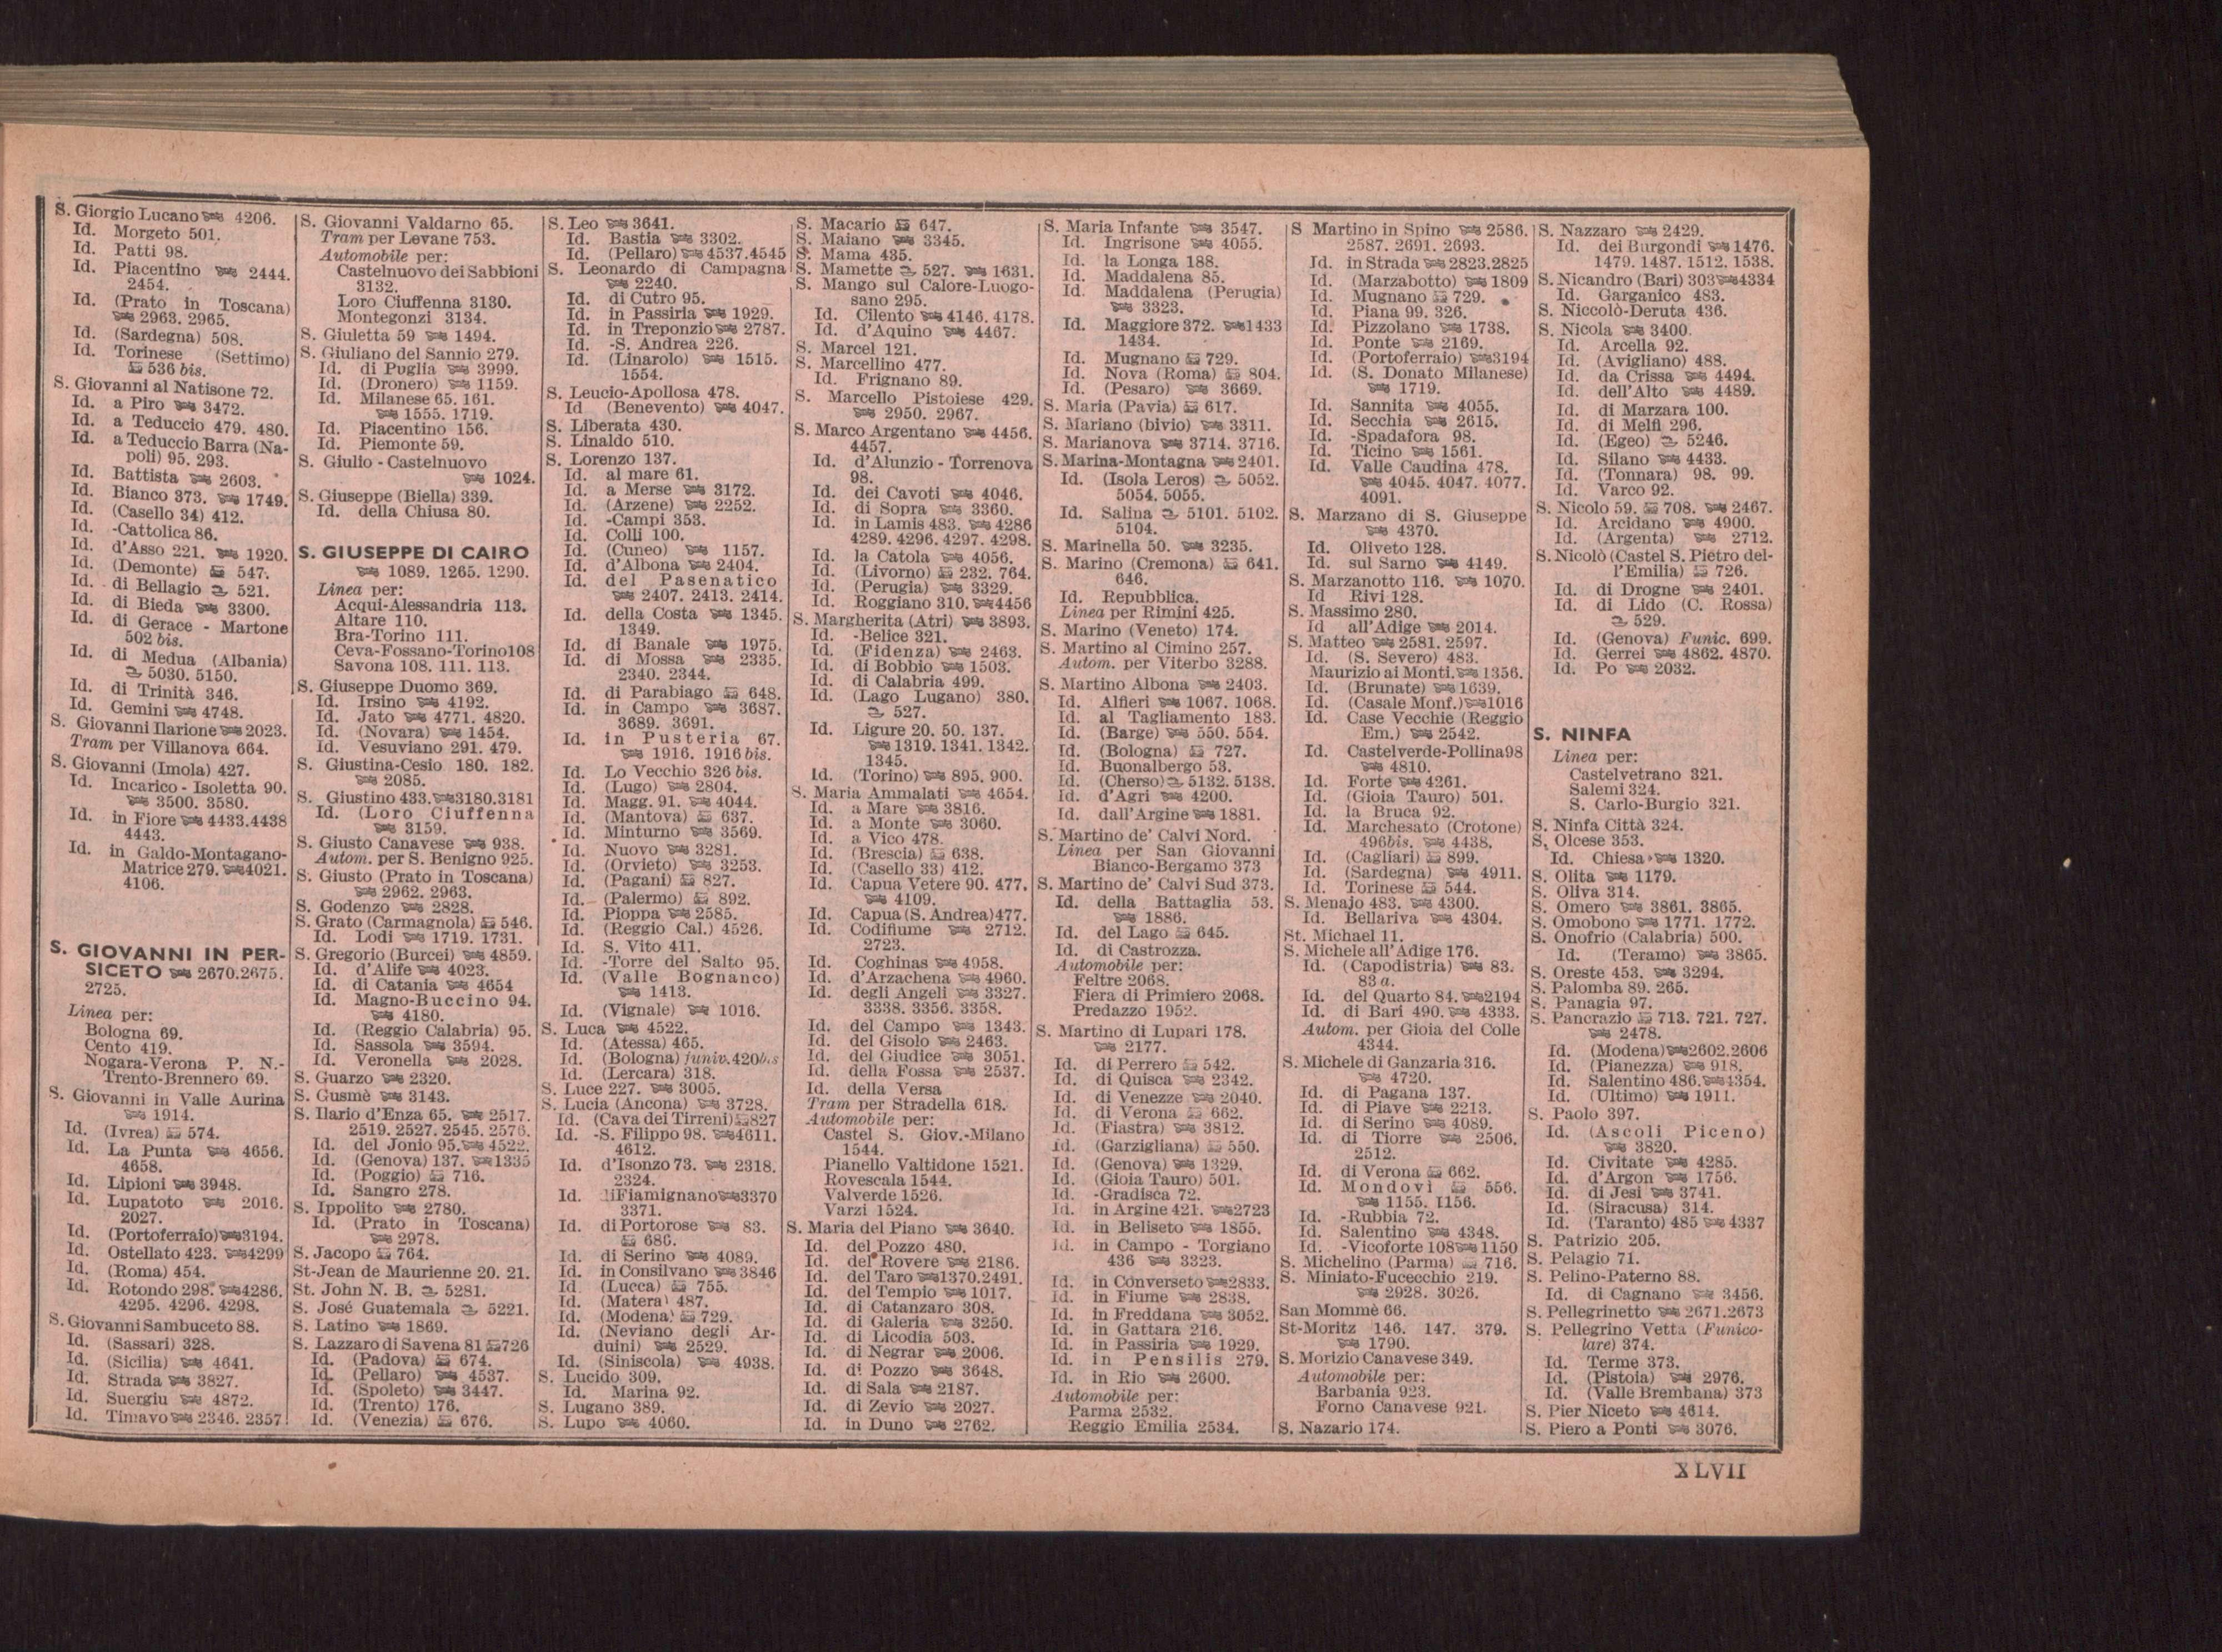 S. Giorgio Lucano 4206.
Id. Morgeto 501.
Id. Patti 98.
Id. Piacentino 2444.
2454.
Id. (Prato in Toscana)
2963. 2965.
Id. (Sardegna) 508.
Id. Torinese (Settimo)
536 bis.
S. Giovanni al Natisone 72.
Id. a Piro 3472.
Id. a Teduccio 479. 480.
Id. a Teduccio Barra (Na-
poli) 95. 293.
Id. Battista 2603.
Id. Bianco 373. 1749.
Id. (Casello 34) 412.
Id. -Cattolica 86.
Id. d'Asso 221. 1920.
Id. (Demonte) 547.
Id. di Bellagio 521.
Id. di Bieda 3300.
Id. di Gerace - Martone
502 bis.
Id. di Medua (Albania)
5030. 5150.
Id. di Trinità 346.
Id. Gemini 4748.
S. Giovanni Ilarione 2023.
Tram per Villanova 664.
S. Giovanni (Imola) 427.
Id. Incarico - Isoletta 90.
3500. 3580.
Id. in Fiore 4433.4438
4443.
Id. in Galdo-Montagano-
Matrice 279. 4021.
4106.
S. GIOVANNI IN PER-
SICETO 2670.2675.
2725.
Linea per:
Bologna 69.
Cento 419.
Nogara-Verona P. N.-
Trento-Brennero 69.
S. Giovanni in Valle Aurina
1914.
Id. (Ivrea) 574.
Id. La Punta 4656.
4658.
Id. Lipioni 3948.
Id. Lupatoto 2016.
2027.
Id. (Portoferraio) 3194.
Id. Ostellato 423. 4299
Id. (Roma) 454.
Id. Rotondo 298. 4286.
4295. 4296. 4298.
S. Giovanni Sambuceto 88.
Id. (Sassari) 328.
Id. (Sicilia) 4641.
Id. Strada 3827.
Id. Suergiu 4872.
Id. Timavo 2346. 2357.
S. Giovanni Valdarno 65.
Tram per Levane 753.
Automobile per:
Castelnuovo dei Sabbioni
3132.
Loro Ciuffenna 3130.
Montegonzi 3134.
S. Giuletta 59 1494.
S. Giuliano del Sannio 279.
Id. di Puglia 3999.
Id. (Dronero) 1159.
Id. Milanese 65. 161.
1555. 1719.
Id. Piacentino 156.
Id. Piemonte 59.
S. Giulio - Castelnuovo
1024.
S. Giuseppe (Biella) 339.
Id. della Chiusa 80.
S. GIUSEPPE DI CAIRO
1089. 1265. 1290.
Linea per:
Acqui-Alessandria 113.
Altare 110.
Bra-Torino 111.
Ceva-Fossano-Torino108
Savona 108. 111. 113.
S. Giuseppe Duomo 369.
Id. Irsino 4192.
Id. Jato 4771. 4820.
Id. (Novara) 1454.
Id. Vesuviano 291. 479.
S. Giustina-Cesio 180. 182.
2085.
S. Giustino 433. 3180.3181
Id. (Loro Ciuffenna
3159.
S. Giusto Canavese 938.
Autom. per S. Benigno 925.
S. Giusto (Prato in Toscana)
2962. 2963.
S. Godenzo 2828.
S. Grato (Carmagnola) 546.
Id. Lodi 1719. 1731.
S. Gregorio (Burcei) 4859.
Id. d'Alife 4023.
Id. di Catania 4654
Id. Magno-Buccino 94.
4180.
Id. (Reggio Calabria) 95.
Id. Sassola 3594.
Id. Veronella 2028.
S. Guarzo 2320.
S. Gusmè 3143.
S. Ilario d'Enza 65. 2517.
2519. 2527. 2545. 2576.
Id. del Jonio 95. 4522.
Id. (Genova) 137. 1335
Id. (Poggio) 716.
Id. Sangro 278.
S. Ippolito 2780.
Id. (Prato in Toscana)
2978.
S. Jacopo 764.
St-Jean de Maurienne 20. 21.
St. John N. B. 5281.
S. José Guatemala 5221.
S. Latino 1869.
S. Lazzaro di Savena 81 726
Id. (Padova) 674.
Id. (Pellaro) 4537.
Id. (Spoleto) 3447.
Id. (Trento) 176.
Id. (Venezia) 676.
S. Leo 3641.
Id. Bastia 3302.
Id. (Pellaro) 4537.4545
S. Leonardo di Campagna
2240.
Id. di Cutro 95.
Id. in Passiria 1929.
Id. in Treponzio 2787.
Id. -S. Andrea 226.
Id. (Linarolo) 1515.
1554.
S. Leucio-Apollosa 478.
Id (Benevento) 4047.
S. Liberata 430.
S. Linaldo 510.
S. Lorenzo 137.
Id. al mare 61.
Id. a Merse 3172.
Id. (Arzene) 2252.
Id. -Campi 353.
Id. Colli 100.
Id. (Cuneo) 1157.
Id. d'Albona 2404.
Id. del Pasenatico
2407. 2413. 2414.
Id. della Costa 1345.
1349.
Id. di Banale 1975.
Id. di Mossa 2335.
2340. 2344.
Id. di Parabiago 648.
Id. in Campo 3687.
3689. 3691.
Id. in Pusteria 67.
1916. 1916 bis.
Id. Lo Vecchio 326 bis.
Id. (Lugo) 2804.
Id. Magg. 91. 4044.
Id. (Mantova) 637.
Id. Minturno 3569.
Id. Nuovo 3281.
Id. (Orvieto) 3253.
Id. (Pagani) 827.
Id. (Palermo) 892.
Id. Pioppa 2585.
Id. (Reggio Cal.) 4526.
Id. S. Vito 411.
Id. -Torre del Salto 95.
Id. (Valle Bognanco)
1413.
Id. (Vignale) 1016.
S. Luca 4522.
Id. (Atessa) 465.
Id. (Bologna) juniv.420bis
Id. (Lercara) 318.
S. Luce 227. 3005.
S. Lucia (Ancona) 3728.
Id. (Cava dei Tirreni) 827
Id. -S. Filippo 98. 4611.
4612.
Id. d'Isonzo 73. 2318.
2324.
Id. diFiamignano 3370
3371.
Id. di Portorose 83.
686.
Id. di Serino 4089.
Id. in Consilvano 3846
Id. (Lucca) 755.
Id. (Matera) 487.
Id. (Modena) 729.
Id. (Neviano degli Ar-
duini) 2529.
Id. (Siniscola) 4938.
S. Lucido 309.
Id. Marina 92.
S. Lugano 389.
S. Lupo 4060.
S. Macario 647.
S. Maiano 3345.
S. Mama 435.
S. Mamette 527. 1631.
S. Mango sul Calore-Luogo-
sano 295.
Id. Cilento 4146. 4178.
Id. d'Aquino 4467.
S. Marcel 121.
S. Marcellino 477.
Id. Frignano 89.
S. Marcello Pistoiese 429.
2950. 2967.
S. Marco Argentano 4456.
4457.
Id. d'Alunzio - Torrenova
98.
Id. dei Cavoti 4046.
Id. di Sopra 3360.
Id. in Lamis 483. 4286
4289. 4296. 4297. 4298.
Id. la Catola 4056.
Id. (Livorno) 232. 764.
Id. (Perugia) 3329.
Id. Roggiano 310. 4456
S. Margherita (Atri) 3893.
Id. -Belice 321.
Id. (Fidenza) 2463.
Id. di Bobbio 1503.
Id. di Calabria 499.
Id. (Lago Lugano) 380.
527.
Id. Ligure 20. 50. 137.
1319. 1341. 1342.
1345.
Id. (Torino) 895. 900.
S. Maria Ammalati 4654.
Id. a Mare 3816.
Id. a Monte 3060.
Id. a Vico 478.
Id. (Brescia) 638.
Id. (Casello 33) 412.
Id. Capua Vetere 90. 477.
4109.
Id. Capua (S. Andrea)477.
Id. Codifiume 2712.
2723.
Id. Coghinas 4958.
Id. d'Arzachena 4960.
Id. degli Angeli 3327.
3338. 3356. 3358.
Id. del Campo 1343.
Id. del Gisolo 2463.
Id. del Giudice 3051.
Id. della Fossa 2537.
Id. della Versa
Tram per Stradella 618.
Automobile per:
Castel S. Giov.-Milano
1544.
Pianello Valtidone 1521.
Rovescala 1544.
Valverde 1526.
Varzi 1524.
S. Maria del Piano 3640.
Id. del Pozzo 480.
Id. del Rovere 2186.
Id. del Taro 1370.2491.
Id. del Tempio 1017.
Id. di Catanzaro 308.
Id. di Galeria 3250.
Id. di Licodia 503.
Id. di Negrar 2006.
Id. di Pozzo 3648.
Id. di Sala 2187.
Id. di Zevio 2027.
Id. in Duno 2762.
S. Maria Infante 3547.
Id. Ingrisone 4055.
Id. la Longa 188.
Id. Maddalena 85.
Id. Maddalena (Perugia)
3323.
Id. Maggiore 372. 1433
1434.
Id. Mugnano 729.
Id. Nova (Roma) 804.
Id. (Pesaro) 3669.
S. Maria (Pavia) 617.
S. Mariano (bivio) 3311.
S. Marianova 3714. 3716.
S. Marina-Montagna 2401.
Id. (Isola Leros) 5052.
5054. 5055.
Id. Salina 5101. 5102.
5104.
S. Marinella 50. 3235.
S. Marino (Cremona) 641.
646.
Id. Repubblica.
Linea per Rimini 425.
S. Marino (Veneto) 174.
S. Martino al Cimino 257.
Autom. per Viterbo 3288.
S. Martino Albona 2403.
Id. Alfieri 1067. 1068.
Id. al Tagliamento 183.
Id. (Barge) 550. 554.
Id. (Bologna) 727.
Id. Buonalbergo 53.
Id. (Cherso) 5132. 5138.
Id. d'Agri 4200.
Id. dall'Argine 1881.
S. Martino de' Calvi Nord.
Linea per San Giovanni
Bianco-Bergamo 373
S. Martino de' Calvi Sud 373.
Id. della Battaglia 53.
1886.
Id. del Lago 645.
Id. di Castrozza.
Automobile per:
Feltre 2068.
Fiera di Primiero 2068.
Predazzo 1952.
S. Martino di Lupari 178.
2177.
Id. di Perrero 542.
Id. di Quisca 2342.
Id. di Venezze 2040.
Id. di Verona 662.
Id. (Fiastra) 3812.
Id. (Garzigliana) 550.
Id. (Genova) 1329.
Id. (Gioia Tauro) 501.
Id. -Gradisca 72.
Id. in Argine 421. 2723
Id. in Beliseto 1855.
Id. in Campo - Torgiano
436 3323.
Id. in Converseto 2833.
Id. in Fiume 2838.
Id. in Freddana 3052.
Id. in Gattara 216.
Id. in Passiria 1929.
Id. in Pensilis 279.
Id. in Rio 2600.
Automobile per:
Parma 2532.
Reggio Emilia 2534.
S Martino in Spino 2586.
2587. 2691. 2693.
Id. in Strada 2823.2825
Id. (Marzabotto) 1809
Id. Mugnano 729.
Id. Piana 99. 326.
Id. Pizzolano 1738.
Id. Ponte 2169.
Id. (Portoferraio) 3194
Id. (S. Donato Milanese)
1719.
Id. Sannita 4055.
Id. Secchia 2615.
Id. -Spadafora 98.
Id. Ticino 1561.
Id. Valle Caudina 478.
4045. 4047. 4077.
4091.
S. Marzano di S. Giuseppe
4370.
Id. Oliveto 128.
Id. sul Sarno 4149.
S. Marzanotto 116. 1070.
Id Rivi 128.
S. Massimo 280.
Id all'Adige 2014.
S. Matteo 2581. 2597.
Id. (S. Severo) 483.
Maurizio ai Monti. 1356.
Id. (Brunate) 1639.
Id. (Casale Monf.) 1016
Id. Case Vecchie (Reggio
Em.) 2542.
Id. Castelverde-Pollina98
4810.
Id. Forte 4261.
Id. (Gioia Tauro) 501.
Id. la Bruca 92.
Id. Marchesato (Crotone)
496bis. 4438.
Id. (Cagliari) 899.
Id. (Sardegna) 4911.
Id. Torinese 544.
S. Menajo 483. 4300.
Id. Bellariva 4304.
St. Michael 11.
S. Michele all'Adige 176.
Id. (Capodistria) 83.
83 a.
Id. del Quarto 84. 2194
Id. di Bari 490. 4333.
Autom. per Gioia del Colle
4344.
S. Michele di Ganzaria 316.
4720.
Id. di Pagana 137.
Id. di Piave 2213.
Id. di Serino 4089.
Id. di Tiorre 2506.
2512.
Id. di Verona 662.
Id. Mondovì 556.
1155. 1156.
Id. -Rubbia 72.
Id. Salentino 4348.
Id. -Vicoforte 108 1150
S. Michelino (Parma) 716.
S. Miniato-Fucecchio 219.
2928. 3026.
San Mommè 66.
St-Moritz 146. 147. 379.
1790.
S. Morizio Canavese 349.
Automobile per:
Barbania 923.
Forno Canavese 921.
S. Nazario 174.
S. Nazzaro 2429.
Id. dei Burgondi 1476.
1479. 1487. 1512. 1538.
S. Nicandro (Bari) 303 4334
Id. Garganico 483.
S. Niccolò-Deruta 436.
S. Nicola 3400.
Id. Arcella 92.
Id. (Avigliano) 488.
Id. da Crissa 4494.
Id. dell'Alto 4489.
Id. di Marzara 100.
Id. di Melfi 296.
Id. (Egeo) 5246.
Id. Silano 4433.
Id. (Tonnara) 98. 99.
Id. Varco 92.
S. Nicolo 59. 708. 2467.
Id. Arcidano 4900.
Id. (Argenta) 2712.
S. Nicolò (Castel S. Pietro del-
l'Emilia) 726.
Id. di Drogne 2401.
Id. di Lido (C. Rossa)
529.
Id. (Genova) Funic. 699.
Id. Gerrei 4862. 4870.
Id. Po 2032.
S. NINFA
Linea per:
Castelvetrano 321.
Salemi 324.
S. Carlo-Burgio 321.
S. Ninfa Città 324.
S. Olcese 353.
Id. Chiesa 1320.
S. Olita 1179.
S. Oliva 314.
S. Omero 3861. 3865.
S. Omobono 1771. 1772.
S. Onofrio (Calabria) 500.
Id. (Teramo) 3865.
S. Oreste 453. 3294.
S. Palomba 89. 265.
S. Panagia 97.
S. Pancrazio 713. 721. 727.
2478.
Id. (Modena) 2602.2606
Id. (Pianezza) 918.
Id. Salentino 486. 4354.
Id. (Ultimo) 1911.
S. Paolo 397.
Id. (Ascoli Piceno)
3820.
Id. Civitate 4285.
Id. d'Argon 1756.
Id. di Jesi 3741.
Id. (Siracusa) 314.
Id. (Taranto) 485 4337
S. Patrizio 205.
S. Pelagio 71.
S. Pelino-Paterno 88.
Id. di Cagnano 3456.
S. Pellegrinetto 2671.2673
S. Pellegrino Vetta (Funico-
lare) 374.
Id. Terme 373.
Id. (Pistoia) 2976.
Id. (Valle Brembana) 373
S. Pier Niceto 4614.
S. Piero a Ponti 3076.
XLVII